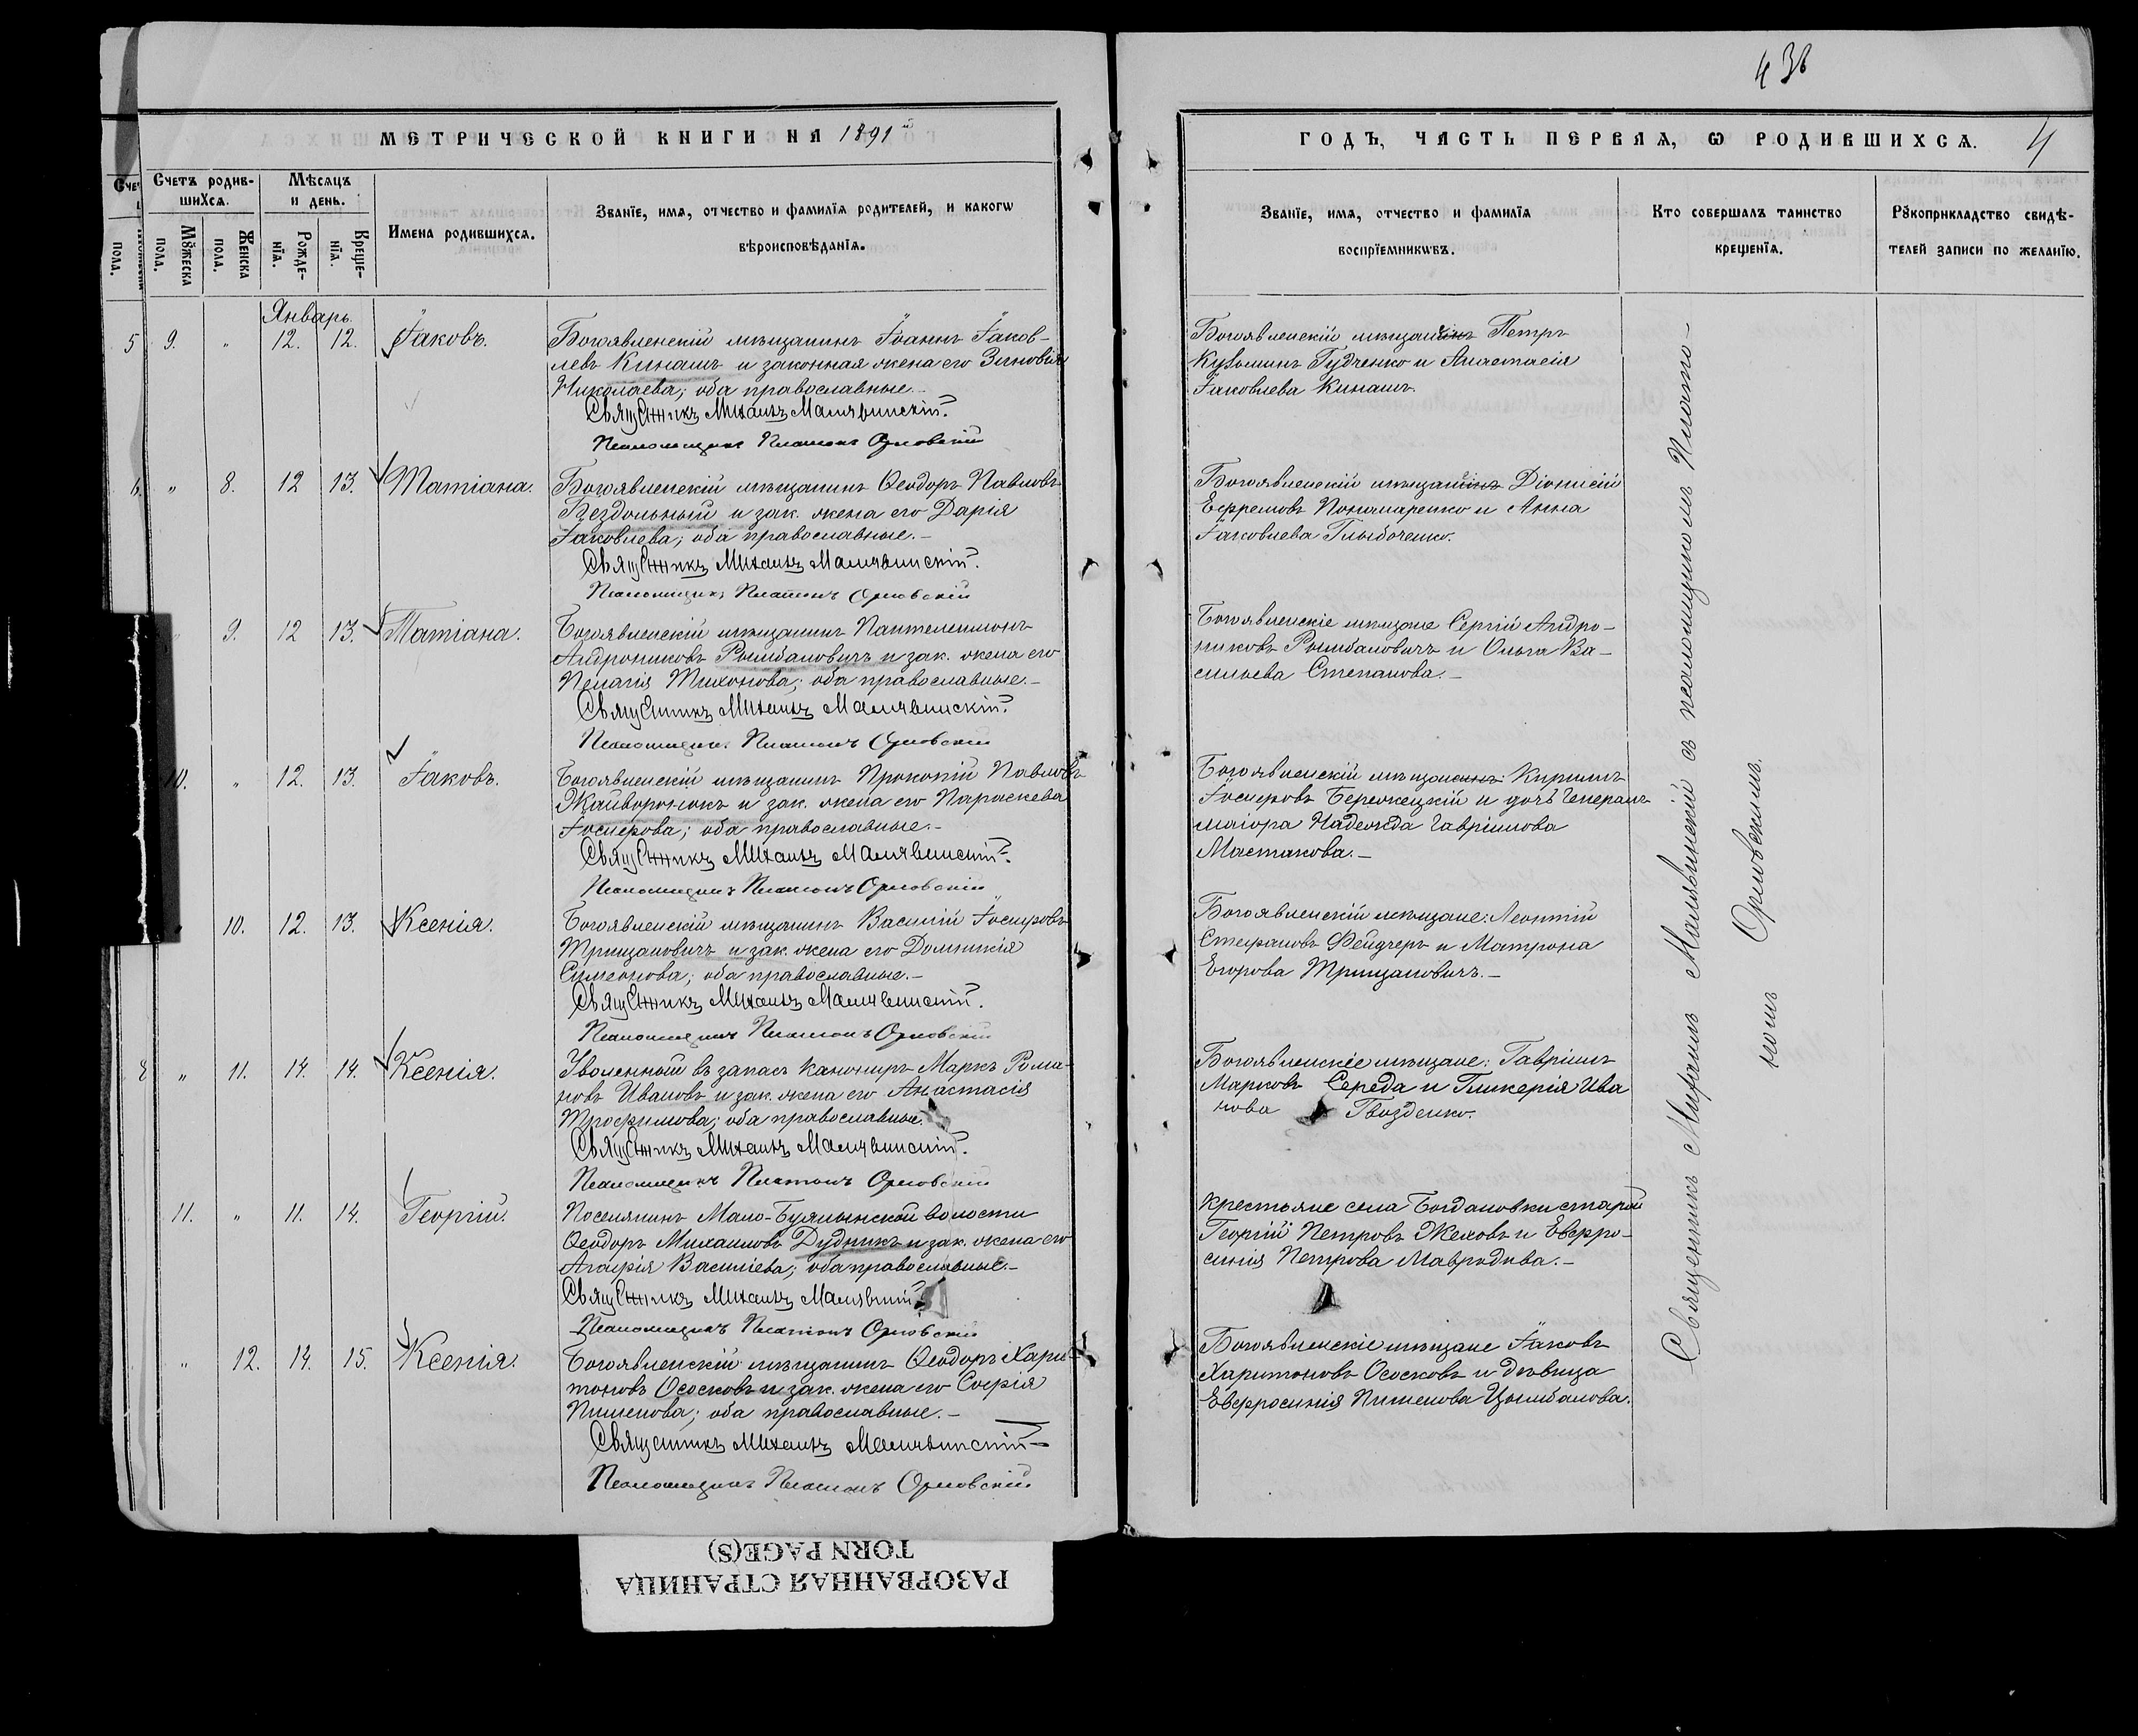 43в
МЕТРИЧЕСКОЙ КНИГИ НА 1891й
ГОДЪ, ЧАСТЬ ПЕРВАЯ, Ѡ РОДИВШИХСѦ. 4
Счетъ родив-
шихсѧ.
Мѣсѧцъ
и день.
Мꙋжеска пола.
Женска пола.
Рожде-
нїѧ.
Креще-
нїѧ.
Имена родившихсѧ.
Званїе, имѧ, отчество и фамилїѧ родителей, и какогѡ
вѣроисповѣданїѧ.
Званїе, имѧ, отчество и фамилїѧ
воспрїемникѡвъ.
Кто совершалъ таинство
крещенїѧ.
Рꙋкоприкладство свидѣ-
телей записи по желанїю.
Январь.
5 9. " 12. 12. Іаковъ.
Богоявленскій мѣщанинъ Іоаннъ Іаков-
левъ Кинашъ и законная жена его Зиновія
Николаева; оба православные.
Священникъ Михаилъ Малявинскій.
Псаломщикъ Платонъ Орловскій
Богоявленскій мѣщанинъ Петръ
Кузьминъ Гудченко и Анастасія
Іаковлева Кинашъ.
6. " 8. 12 13. Татіана.
Богоявленскій мѣщанинъ Ѳеодоръ Павловъ
Бездольный и зак. жена его Дарія
Іаковлева; оба православные.–
Священникъ Михаилъ Малявинскій.
Псаломщикъ Платонъ Орловскій
Богоявленскій мѣщанинъ Діонисій
Ефремовъ Пономаренко и Анна
Іаковлева Глыбоченко.
9. 12 13. Татіана.
Богоявленскій мѣщанинъ Пантелеимонъ
Андрониковъ Рымбаловичъ и зак. жена его
Пелагія Тихонова; оба православные.–
Священникъ Михаилъ Малявинскій.
Псаломщикъ Платонъ Орловскій
Богоявленскіе мѣщане Сергій Андро-
никовъ Рымбаловичъ и Ольга Ва-
сильева Степанова.–
10. " 12. 13. Іаковъ.
Богоявленскій мѣщанинъ Прокопій Павловъ
Жайворонокъ и зак. жена его Параскева
Іосифова; оба православные.–
Священникъ Михаилъ Малявинскій.
Псаломщикъ Платонъ Орловскій
Богоявленскій мѣщанинъ: Кириллъ
Іосифовъ Бережецкій и дочь Генералъ
маіора Надежда Гавріилова
Мастакова.–
10. 12. 13. Ксенія.
Богоявленскій мѣщанинъ Василій Іосифовъ
Трищановичъ и зак. жена его Домникія
Симеонова; оба православные.–
Священникъ Михаилъ Малявинскій.
Псаломщикъ Платонъ Орловскій
Богоявленскій мѣщане: Леонтій
Стефановъ Фейдчеръ и Матрона
Егорова Трищановичъ.–
" 11. 14. 14. Ксенія.
Уволенный въ запасъ канониръ Маркъ Рома-
новъ Ивановъ и зак. жена его Анастасія
Трофимова; оба православные.
Священникъ Михаилъ Малявинскій.
Псаломщикъ Платонъ Орловскій
Богоявленскіе мѣщане: Гавріилъ
Марковъ Середа и Гликерія Ива
нова Гвозденко.
11. " 11. 14. Георгій.
Поселянинъ Мало-Буялынской волости
Ѳеодоръ Михаиловъ Дудникъ и зак. жена его
Агафія Василіева; оба православные.–
Священникъ Михаилъ Малявинскій
Псаломщикъ Платонъ Орловскій
Крестьяне села Богдановки старой
Георгій Петровъ Жеховъ и Евфро-
синія Петрова Мавродова.–
" 12. 14. 15. Ксенія.
Богоявленскій мѣщанинъ Ѳеодоръ Хари-
тоновъ Ососковъ и зак. жена его Софія
Пименова; оба православные.–
Священникъ Михаилъ Малявинскій
Псаломщикъ Платонъ Орловскій
Богоявленскіе мѣщане Іаковъ
Харитоновъ Ососковъ и дѣвица
Евфросинія Пименова Цымбалова.
Священникъ Михаилъ Малявинскій съ псаломщикомъ Плато-
номъ Орловскимъ.
РАЗОРВАННАЯ СТРАНИЦА
TORN PAGE(S)